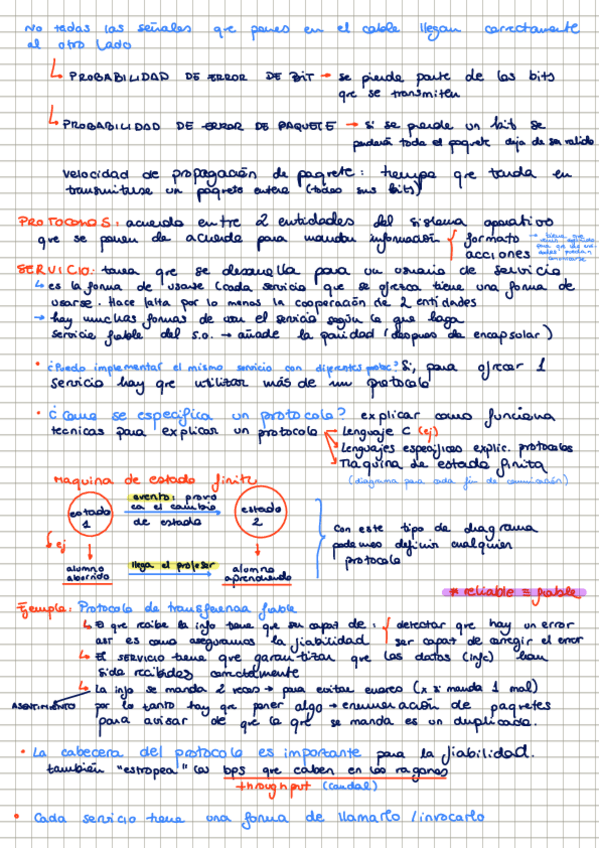 No todas las señales que pones en el cable llegan correctamente
al otro lado
↳ PROBABILIDAD DE ERROR DE BIT → se pierde parte de los bits
que se transmiten
↳ PROBABILIDAD DE ERROR DE PAQUETE → si se pierde un bit se
perderá todo el paquete deja de ser valido
Velocidad de propagación de paquete: tiempo que tarda en
transmitirse un paquete entero (todos sus bits)
PROTOCOLOS: acuerdo entre 2 entidades del sistema operativo
que se ponen de acuerdo para mandar información { formato
acciones
→ tiene que
SERVICIO: tarea que se desarrolla para un usuario de servicio
↳ es la forma de usarse (cada servicio que se ofrezca tiene una forma de
usarse. Hace falta por lo menos la cooperación de 2 entidades
→ hay muchas formas de usar el servicio según lo que haga
servicio fiable del s.o. → añade la paridad (despues de encapsolar)
• ¿Puedo implementar el mismo servicio con diferentes protoc? Si, para ofrecer 1
servicio hay que utilizar más de un protocolo
• ¿Como se especifica un protocolo? explicar como funciona
tecnicas para explicar un protocolo → Lenguaje C (ej)
↳ Lenguajes especificos explic. protocolos
→ Maquina de estado finita
(diagrama para cada fin de comunicación)
Maquina de estado finita
estado 1
evento: provo
ca el cambio
de estado
estado 2
Con este tipo de diagrama
podemos definir cualquier
protocolo
↳ ej
alumno
aburrido
llega el profesor
alumno
aprendiendo
* reliable = fiable
Ejemplo: Protocolo de transferencia fiable
↳ El que recibe la info tiene que ser capat de: { detectar que hay un error
asi es como aseguramos la fiabilidad
ser capat de arreglar el error
↳ El servicio tiene que garantizar que los datos (info) han
sido recibidos correctamente
↳ La info se manda 2 veces → para evitar errores (x si manda 1 mal)
ASENTIMIENTO
por lo tanto hay que poner algo → enumeración de paquetes
para avisar de que lo que se manda es un duplicado.
• La cabecera del protocolo es importante para la fiabilidad.
también "estropea" los bps que caben en los
throughput (caudal)
• Cada servicio tiene una forma de llamarlo / invocarlo